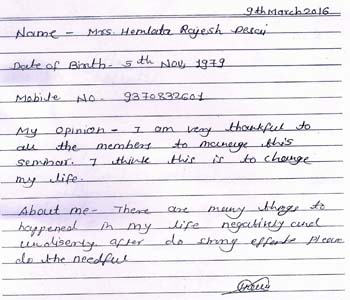 9th March 2016
Name - Mrs. Hemlata Rajesh Desai
Date of Birth - 5th Nov, 1979
Mobile No. 9370832601
My opinion - I am very thankful to
all the members to manage this
seminar. I think this is to change
my life.
About me - There are many things to
happened in my life negatively and
after do strong efforts please
do the needful